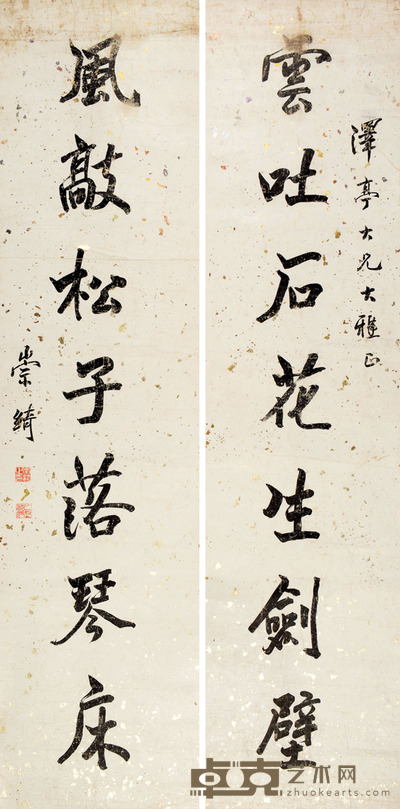 雲吐石花生劍壁
澤亭大兄大雅正
風敲松子落琴床
崇綺
卓克艺术网
zhuokearts.com